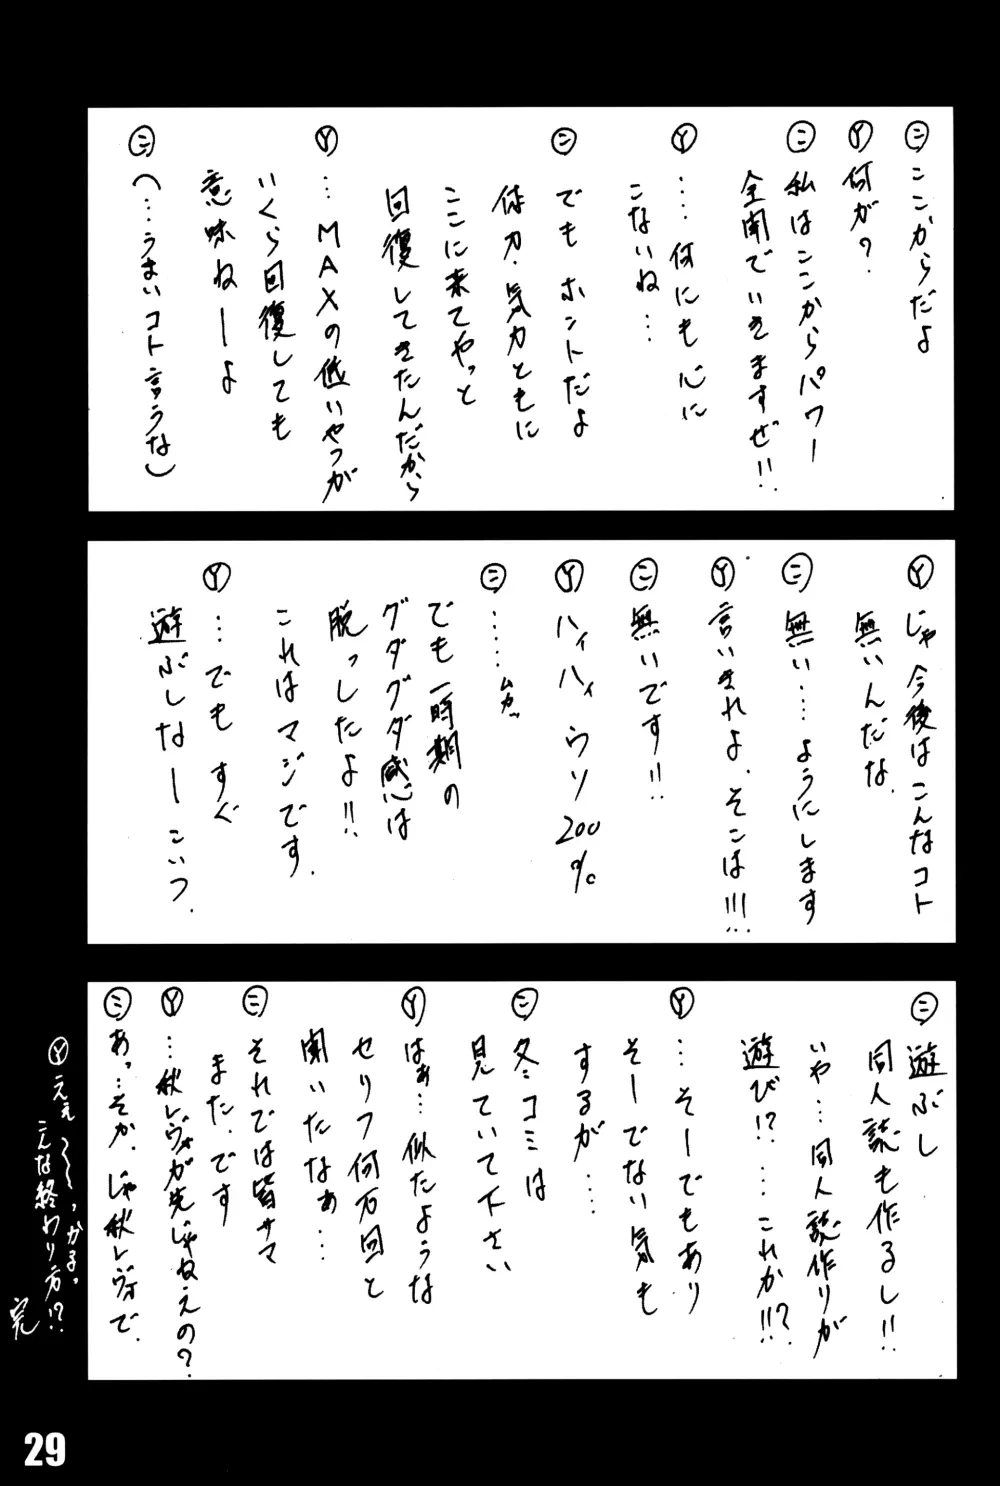 ㊁ここからだよ
Ⓨ何が?
㊁私はここからパワー
全開でいきますぜ!!
Ⓨ……何にも心に
こないね…
㊁でもホントだよ
体力・気力ともに
ここに来てやっと
回復してきたんだから
Ⓨ…MAXの低いやつが
いくら回復しても
意味ねーよ
㊁(…うまいコト言うな)
Ⓨじゃ今後はこんなコト
無いんだな.
㊁無い…ようにします
Ⓨ言いきれよ.そこは!!!
㊁無いです!!
Ⓨハイハイ ウソ200%
㊁……ムカッ
でも一時期の
グダグダ感は
脱っしたよ!!
これはマジです.
Ⓨ…でも すぐ
遊ぶしなーこいつ.
㊁遊ぶし
同人誌も作るし!!
いや…同人誌作りが
遊び!?…これか!!?
Ⓨ…そーでもあり
そーでない気も
するが……
㊁冬コミは
見ていて下さい
Ⓨはぁ…似たような
セリフ何万回と
聞いたなぁ…
㊁それでは皆サマ
また.です
Ⓨ…秋レヴォが先じゃねえの?
㊁あっ…そか.じゃ秋レヴォで.
Ⓨええ〜〜っかるっ
こんな終わり方!?
完
29